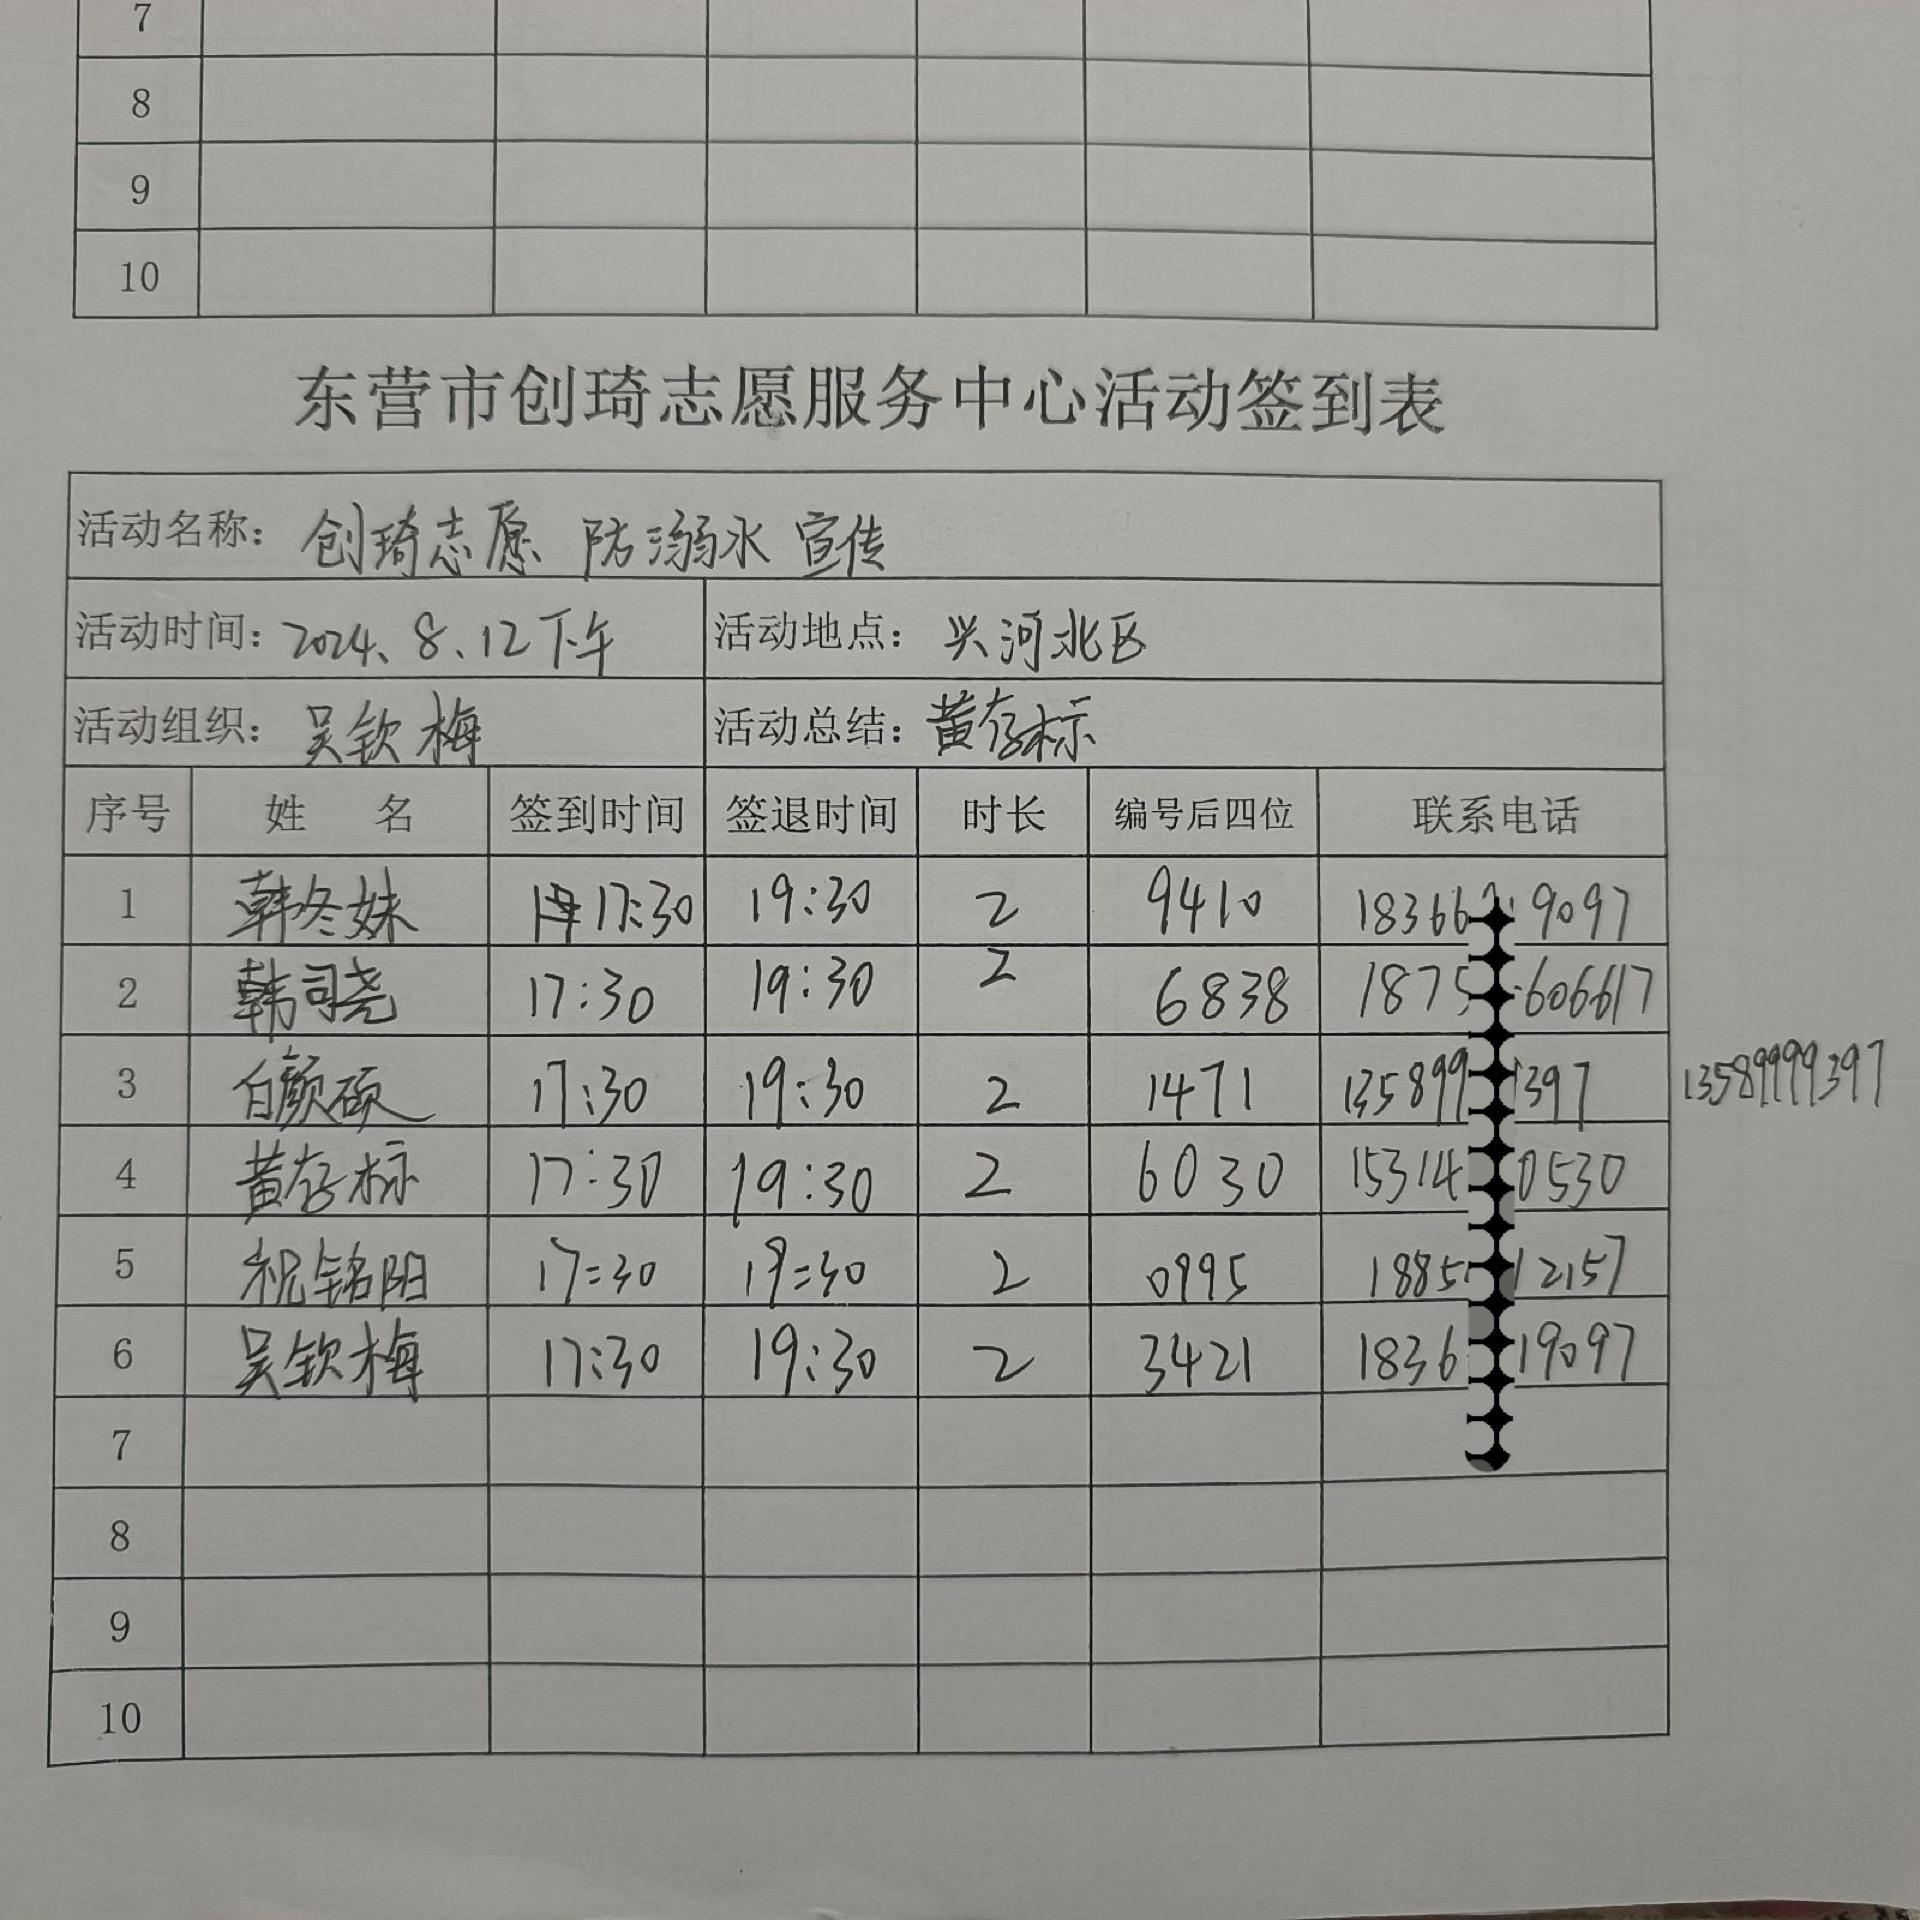 7
8
9
10
东营市创琦志愿服务中心活动签到表
活动名称：创琦志愿 防溺水 宣传
活动时间：2024、8、12下午 活动地点：兴河北区
活动组织：吴钦梅 活动总结：黄存标
序号 姓 名 签到时间 签退时间 时长 编号后四位 联系电话
1 韩冬妹 17:30 19:30 2 9410 18366 9097
2 韩司尧 17:30 19:30 2 6838 1875 606617
3 白颜硕 17:30 19:30 2 1471 135899 397 13589999397
4 黄存标 17:30 19:30 2 6030 15314 0530
5 祝铭阳 17:30 19:30 2 0995 1885 12157
6 吴钦梅 17:30 19:30 2 3421 1836 19097
7
8
9
10